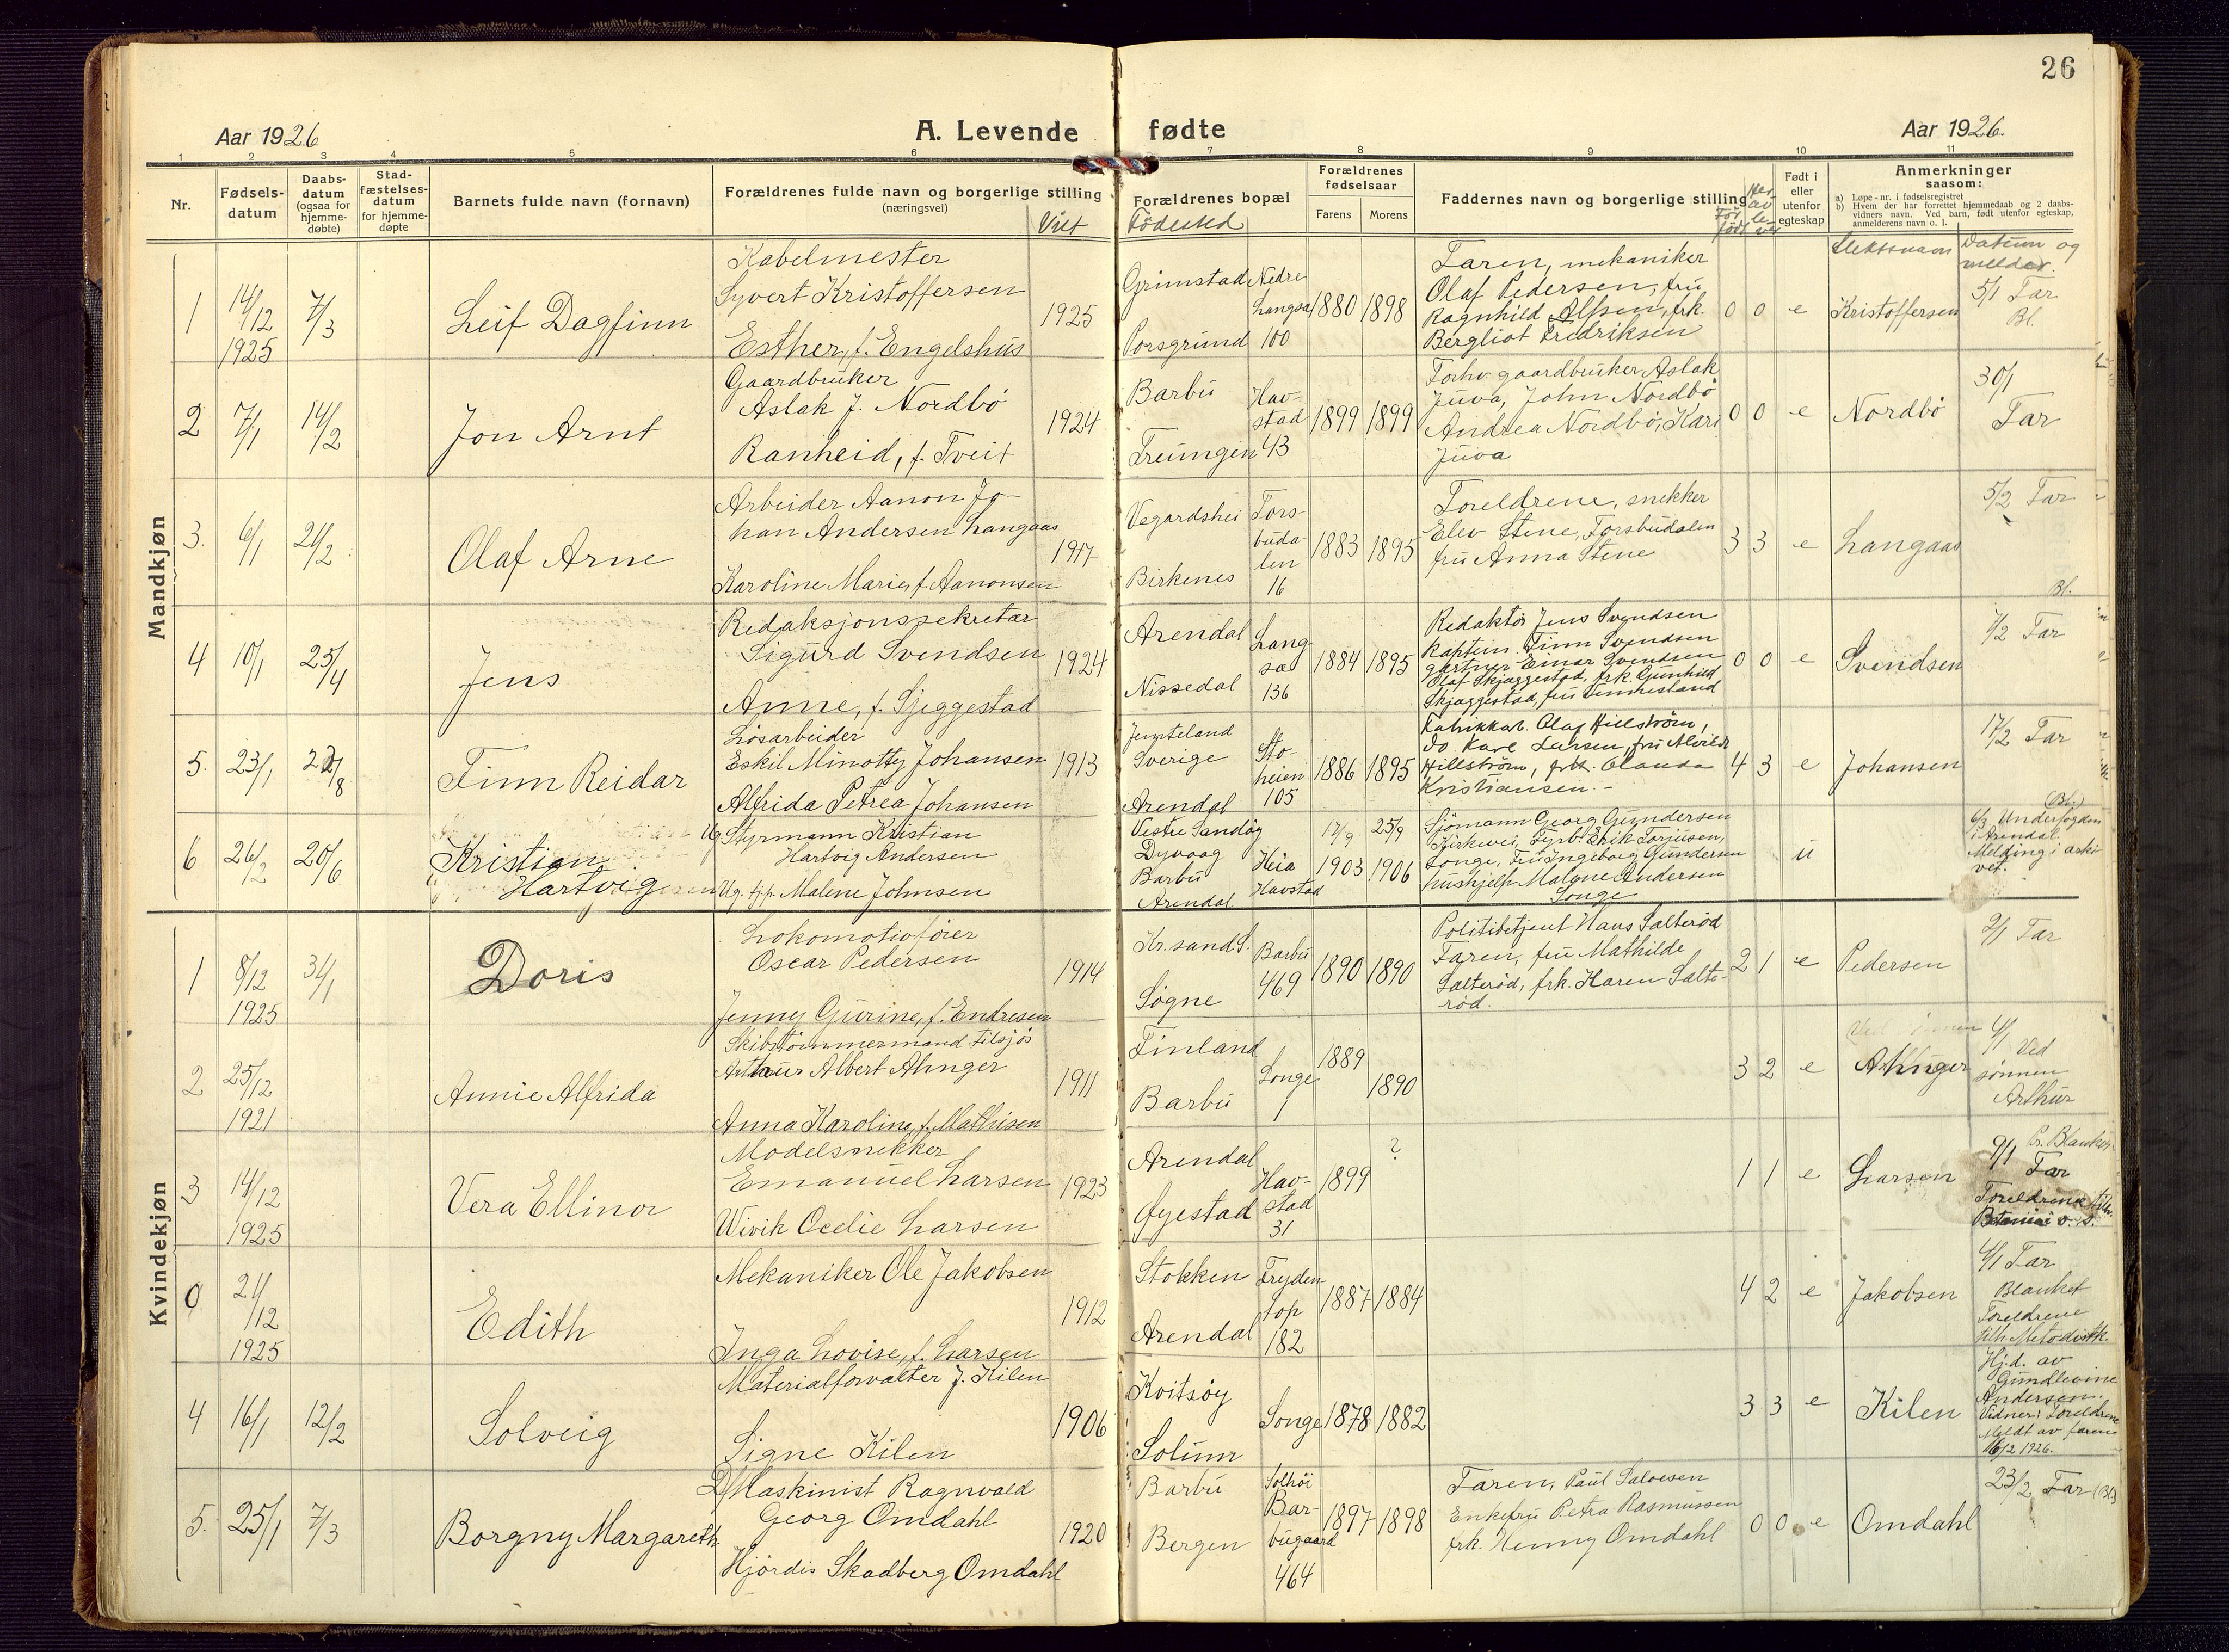 26
Aar 1926
A. Levende fødte
Aar 1926.
1 2 3 4 5 6 7 8 9 10 11
Nr.
Fødsels-
datum
Daabs-
datum
(ogsaa for
hjemme-
døbte)
Stad-
fæstelses-
datum
for hjemme-
døpte
Barnets fulde navn (fornavn)
Forældrenes fulde navn og borgerlige stilling
(næringsvei)
Viet
Forældrenes bopæl
Födested
Forældrenes
fødselsaar
Farens Morens
Faddernes navn og borgerlige stilling
Før
født
Her
av
lever
Født i
eller
utenfor
egteskap
Anmerkninger
saasom:
a) Løpe-nr. i fødselsregistret
b) Hvem der har forrettet hjemmedaab og 2 daabs-
vidners navn. Ved barn, født utenfor egteskap,
anmelderens navn o. l.
Slektsnavn
Datum og
melder.
Mandkjøn
1
14/12
1925
7/3
Leif Dagfinn
Kabelmester
Syvert Kristoffersen
Esther, f. Engelshus
1925
Grimstad
Porsgrund
Nedre
Langsæ
100
1880 1898
Faren, mekaniker
Olaf Pedersen, fru
Ragnhild Alfsen, frk.
Bergliot Fredriksen
0 0 e
Kristoffersen
5/1 Far
Bl.
2
7/1
14/2
Jon Arnt
Gaardbruker
Aslak J. Nordbö
Ranheid, f. Tveit
1924
Barbu
Treungen
Hav-
stad
43
1899 1899
Forhv. gaardbruker Aslak
Juva, John Nordbö
Andrea Nordbö, Kari
Juva
0 0 e
Nordbö
30/1
Far
3.
6/1
21/2
Olaf Arne
Arbeider Aanon Jo-
han Andersen Langaas
Karoline Marie, f. Aanonsen
1917
Vegardshei
Birkenes
Fors-
buda-
len
16
1883 1895
Foreldrene, snekker
Elev Stene, Forsbudalen
fru Anna Stene
3 3 e
Langaas
5/2 Far
Bl.
4
10/1
25/4
Jens
Redaksjonssekretær
Sigurd Svendsen
Anne, f. Sjeggestad
1924
Arendal
Nissedal
Lang-
sæ
136
1884 1895
Redaktör Jens Svendsen
kaptein Finn Svendsen
gartner Einar Svendsen
Olaf Skjæggestad, frk. Gunhild
Skjæggestad, fru
0 0 e
Svendsen
7/2 Far
5.
23/1
22/8
Finn Reidar
Løsarbeider
Eskil Minotty Johansen
Alfrida Petrea Johansen
1913
Jemteland
Sverige
Arendal
Sto-
heien
105
1886 1895
Fabrikkarb. Olaf Hillström,
do Karl Larsen, fru Alvilde
Hillström, frk. Clauda
Kristiansen.-
4 3 e
Johansen
17/2 Far
6
26/2
20/6
Kristian
Hartvig
Ug. Styrmann Kristian
Hartvig Andersen
Ug. tj.p. Malene Johnsen
Vestre Sandøy
Dyvaag
Barbu
Arendal
Heia
Havstad
17/9
1903
25/9
1906
Sjömann Georg Gundersen
Kirkevei, Fyrb. Erik Torjusen,
Songe, Fru Ingeborg Gundersen
hushjelp Malene Andersen
Songe
u
(Bly)
6/3. Underfogden
i Arendal.
Melding i arki-
vet.
Kvindekjøn
1
8/12
1925
31/1
Doris
Lokomotivfører
Oscar Pedersen
Jenny Gurine, f. Endresen
1914
Kr.sand S.
Søgne
Barbu
469
1890 1890
Politibetjent Hans Salteröd
Faren, fru Mathilde
Salteröd, frk. Haren Salte-
röd.
2 1 e
Pedersen
2/1 Far
2
25/12
1921
Annie Alfrida
Skibstömmermand tilsjös
Arthur Albert Ahnger
Anna Karoline, f. Mathisen
1911
Finland
Barbu
Songe
1
1889 1890
3 2 e
Ahnger
4/1 Ved
sønnen
Arthur
3
14/12
1925
Vera Ellinor
Modelsnekker
Emanuel Larsen
Wivik Ocelie Larsen
1923
Arendal
Øyestad
Hav-
stad
31
1899 ?
1 1 e
Larsen
9/1 Pr. Blanket
Far
Foreldrene tilh.
Betania o. s.
0
21/12
1925
Edith
Mekaniker Ole Jakobsen
Inga Lovise, f. Larsen
1912
Stokken
Arendal
Fryden-
top
182
1887 1884
4 2 e
Jakobsen
4/1 Far
Blanket
Foreldrene
tilh. Metodistk.
4
16/1
12/2
Solveig
Materialforvalter J. Kilen
Signe Kilen
1906
Kvitsøy
Solum
Songe
1878 1882
3 3 e
Kilen
Hj.d. av
Gundlevine
Andersen.
Vidner: Foreldrene
Meldt av faren
16/2 1926.
5.
25/1
7/3
Borgny Margareth
Maskinist Ragnvald
Georg Omdahl
Hjördis Skadberg Omdahl
1920
Barbu
Bergen
Solhöi
Bar-
bugaard
464
1897 1898
Faren, Paul Salvesen
Enkefru Petra Rasmussen
frk. Henny Omdahl
0 0 e
Omdahl
23/2 Far (Bl)